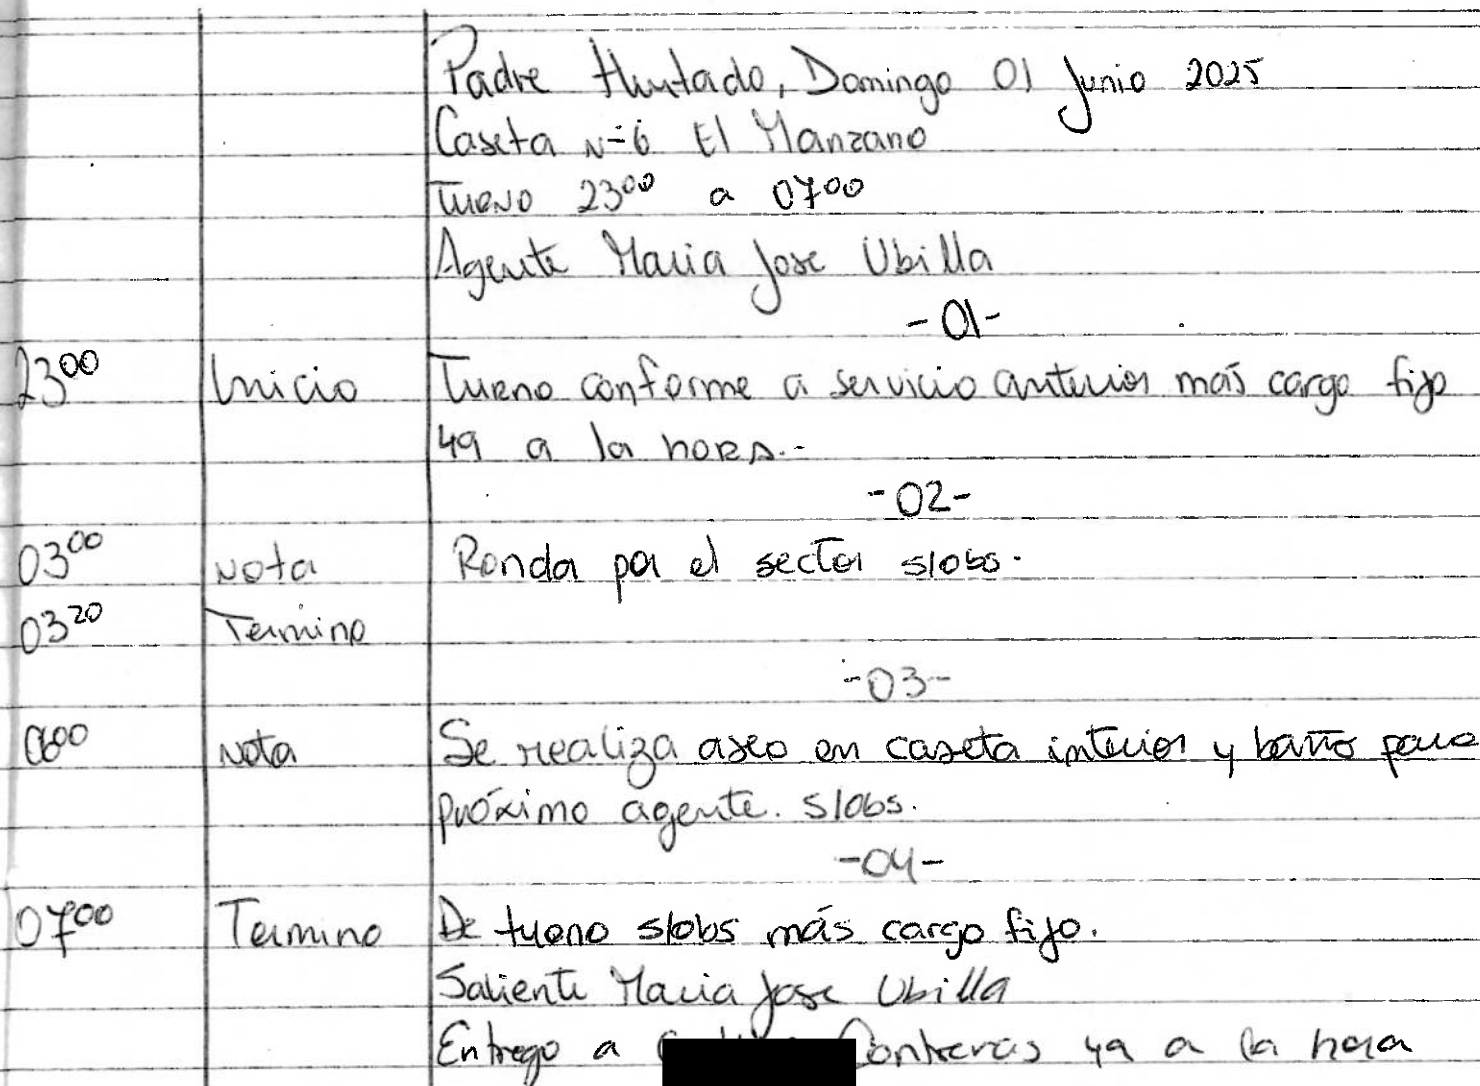 Padre Hurtado, Domingo 01 Junio 2025
Caseta N=6 El Manzano
Turno 23⁰⁰ a 07⁰⁰
Agente Maria Jose Ubilla
-01-
23⁰⁰ Inicio Turno conforme a servicio anterior más cargo fijo
49 a la hora.-
-02-
03⁰⁰ Nota Ronda por el sector s/obs.
03²⁰ Termino
-03-
06⁰⁰ Nota Se realiza aseo en caseta interior y baño para
próximo agente. S/obs.
-04-
07⁰⁰ Termino De turno s/obs más cargo fijo.
Saliente Maria Jose Ubilla
Entrego a Contreras 49 a la hora